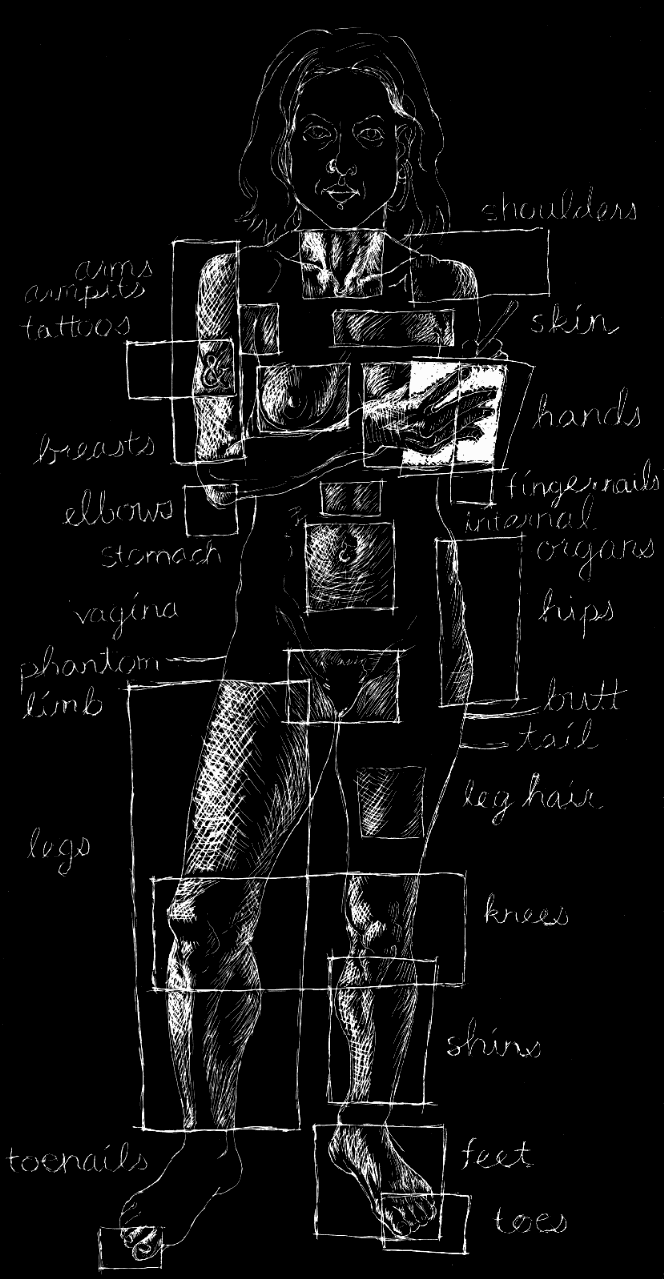 shoulders
arms
armpits
tattoos
skin
&
hands
breasts
fingernails
elbows
internal
organs
stomach
vagina
hips
phantom
limb
butt
tail
leg hair
legs
knees
shins
toenails
feet
toes